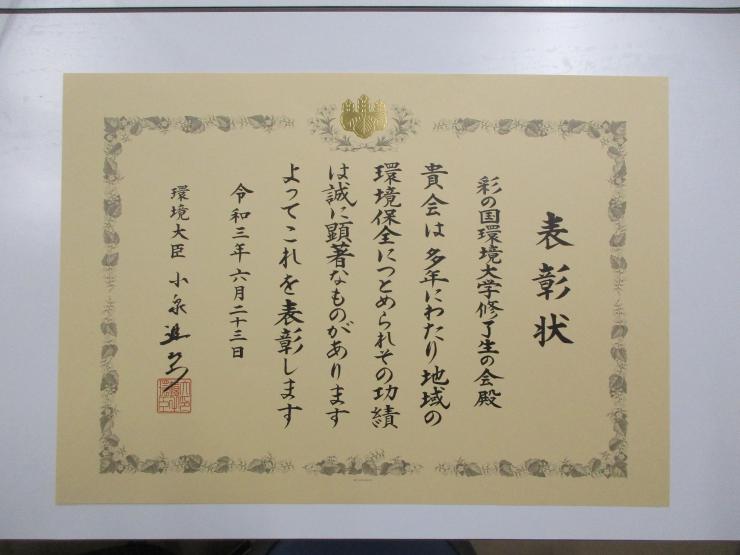 表彰状
彩の国環境大学修了生の会殿
貴会は多年にわたり地域の
環境保全につとめられその功績
は誠に顕著なものがあります
よってこれを表彰します
令和三年六月二十三日
環境大臣 小泉進次郎